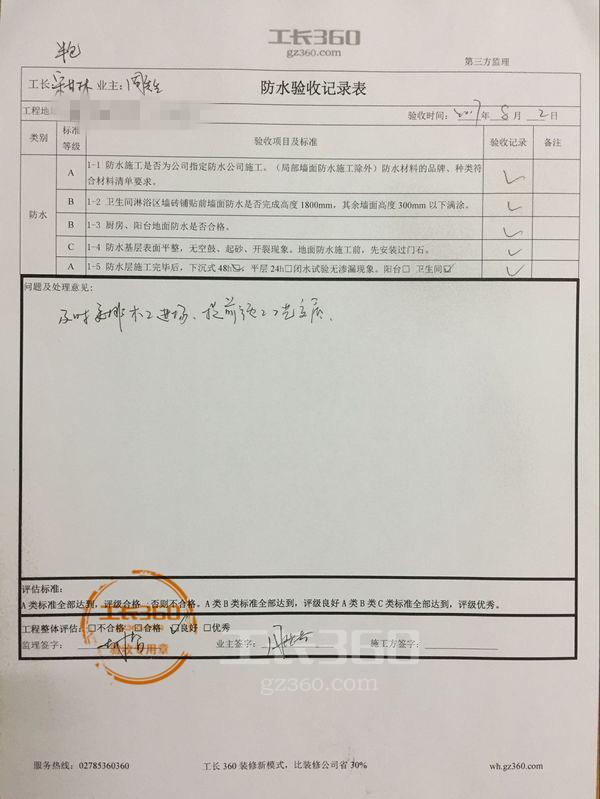 工长360
gz360.com
半包
第三方监理
工长: 业主:周先生
防水验收记录表
工程地 验收时间:2017年8月2日
类别 标准等级 验收项目及标准 验收记录 备注
防水
A 1-1 防水施工是否为公司指定防水公司施工。（局部墙面防水施工除外）防水材料的品牌、种类符
合材料清单要求。 ✓
B 1-2 卫生间淋浴区墙砖铺贴前墙面防水是否完成高度1800mm，其余墙面高度300mm以下满涂。 ✓
B 1-3 厨房、阳台地面防水是否合格。 ✓
C 1-4 防水基层表面平整，无空鼓、起砂、开裂现象。地面防水施工前，先安装过门石。 ✓
A 1-5 防水层施工完毕后，下沉式48h☑，平层24h□闭水试验无渗漏现象。阳台□ 卫生间☑ ✓
问题及处理意见:
及时安排木工进场、提前 工艺交底.
评估标准:
A类标准全部达到，评级合格 否则不合格。A类B类标准全部达到，评级良好A类B类C类标准全部达到，评级优秀。
工程整体评估:□不合格 □合格 ☑良好 □优秀
监理签字: 业主签字: 施工方签字:
工长360
验收专用章
工长360
gz360.com
服务热线：02785360360 工长360装修新模式，比装修公司省30% wh.gz360.com